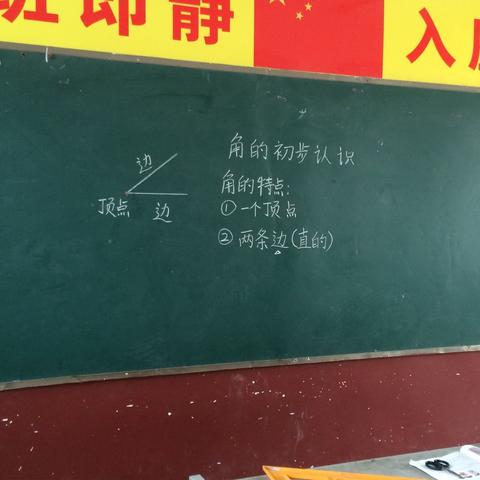 班即静
入
角的初步认识
边
角的特点:
顶点
边
①一个顶点
②两条边(直的)